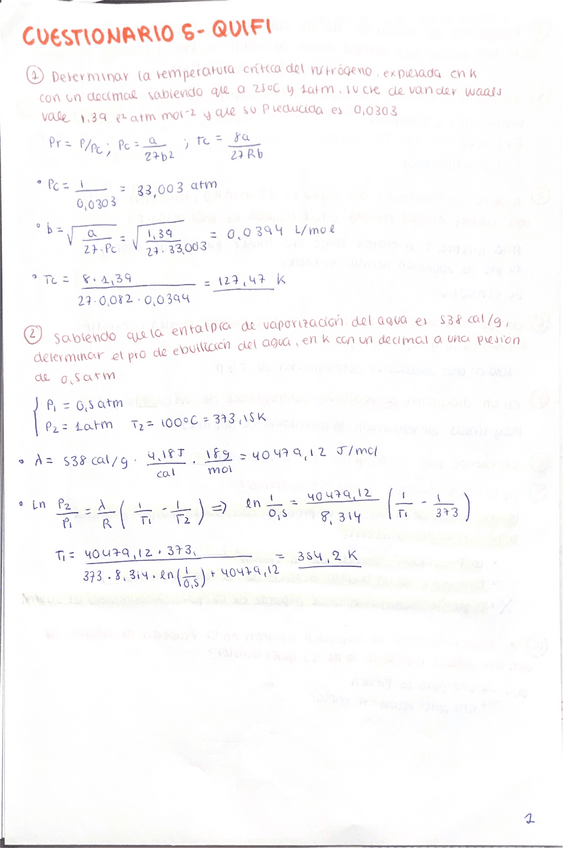 CUESTIONARIO 5- QUIFI
① Determinar la temperatura crítica del nitrógeno, expresada en K
con un decimal sabiendo que a 25ºC y 1atm. su cte de van der Waals
vale 1,39 ℓ² atm mol⁻² y que su P reducida es 0,0303
Pr = P/Pc ; Pc = a/27b² ; Tc = 8a/27Rb
• Pc = 1/0,0303 = 33,003 atm
• b = √(a/27·Pc) = √(1,39/27·33,003) = 0,0394 L/mol
• Tc = 8·1,39/27·0,082·0,0394 = 127,47 K
② Sabiendo que la entalpía de vaporización del agua es 538 cal/g,
determinar el pto de ebullición del agua, en K con un decimal a una presión
de 0,5 atm
P₁ = 0,5 atm
P₂ = 1 atm T₂ = 100ºC = 373,15K
• λ = 538 cal/g · 4,18J/cal · 18g/mol = 40479,12 J/mol
• Ln P₂/P₁ = λ/R (1/T₁ - 1/T₂) => ln 1/0,5 = 40479,12/8,314 (1/T₁ - 1/373)
T₁ = 40479,12·373,/373·8,314·ln(1/0,5) + 40479,12 = 354,2 K
1